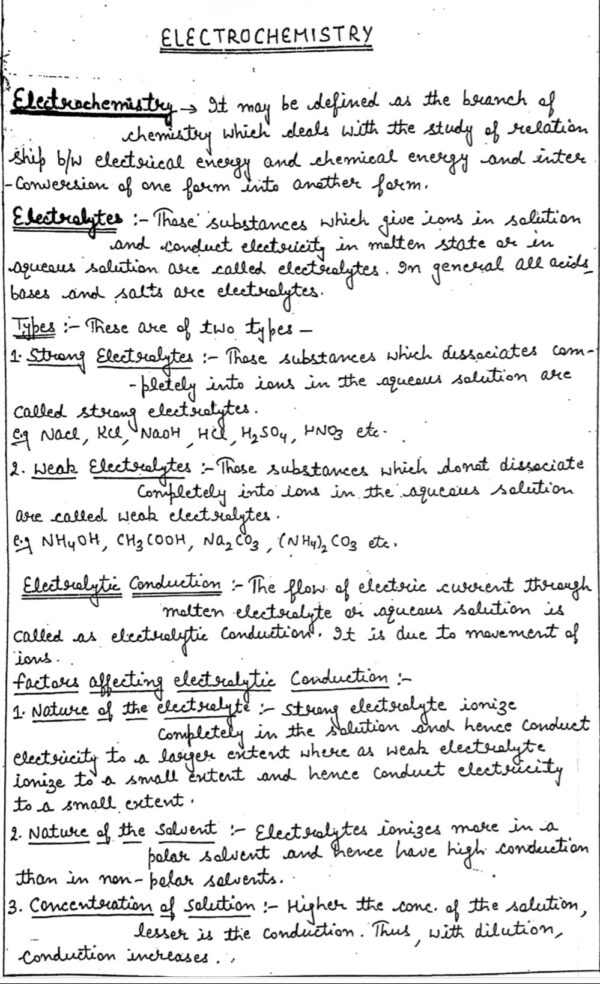 ELECTROCHEMISTRY
Electrochemistry → It may be defined as the branch of
chemistry which deals with the study of relation
ship b/w electrical energy and chemical energy and inter
-conversion of one form into another form.
Electrolytes :- Those substances which give ions in solution
and conduct electricity in molten state or in
aqueous solution are called electrolytes. In general all acids,
bases and salts are electrolytes.
Types :- These are of two types —
1. Strong Electrolytes :- Those substances which dissociates com-
-pletely into ions in the aqueous solution are
called strong electrolytes.
e.g NaCl, KCl, NaOH, HCl, H2SO4, HNO3 etc.
2. Weak Electrolytes :- Those substances which donot dissociate
completely into ions in the aqueous solution
are called weak electrolytes.
e.g NH4OH, CH3COOH, Na2CO3, (NH4)2CO3 etc.
Electrolytic Conduction :- The flow of electric current through
molten electrolyte or aqueous solution is
called as electrolytic conduction. It is due to movement of
ions.
factors affecting electrolytic Conduction :-
1. Nature of the electrolyte :- Strong electrolyte ionize
completely in the solution and hence conduct
electricity to a larger extent where as weak electrolyte
ionize to a small extent and hence conduct electricity
to a small extent.
2. Nature of the Solvent :- Electrolytes ionizes more in a
polar solvent and hence have high conduction
than in non-polar solvents.
3. Concentration of Solution :- Higher the conc. of the solution,
lesser is the conduction. Thus, with dilution,
conduction increases.